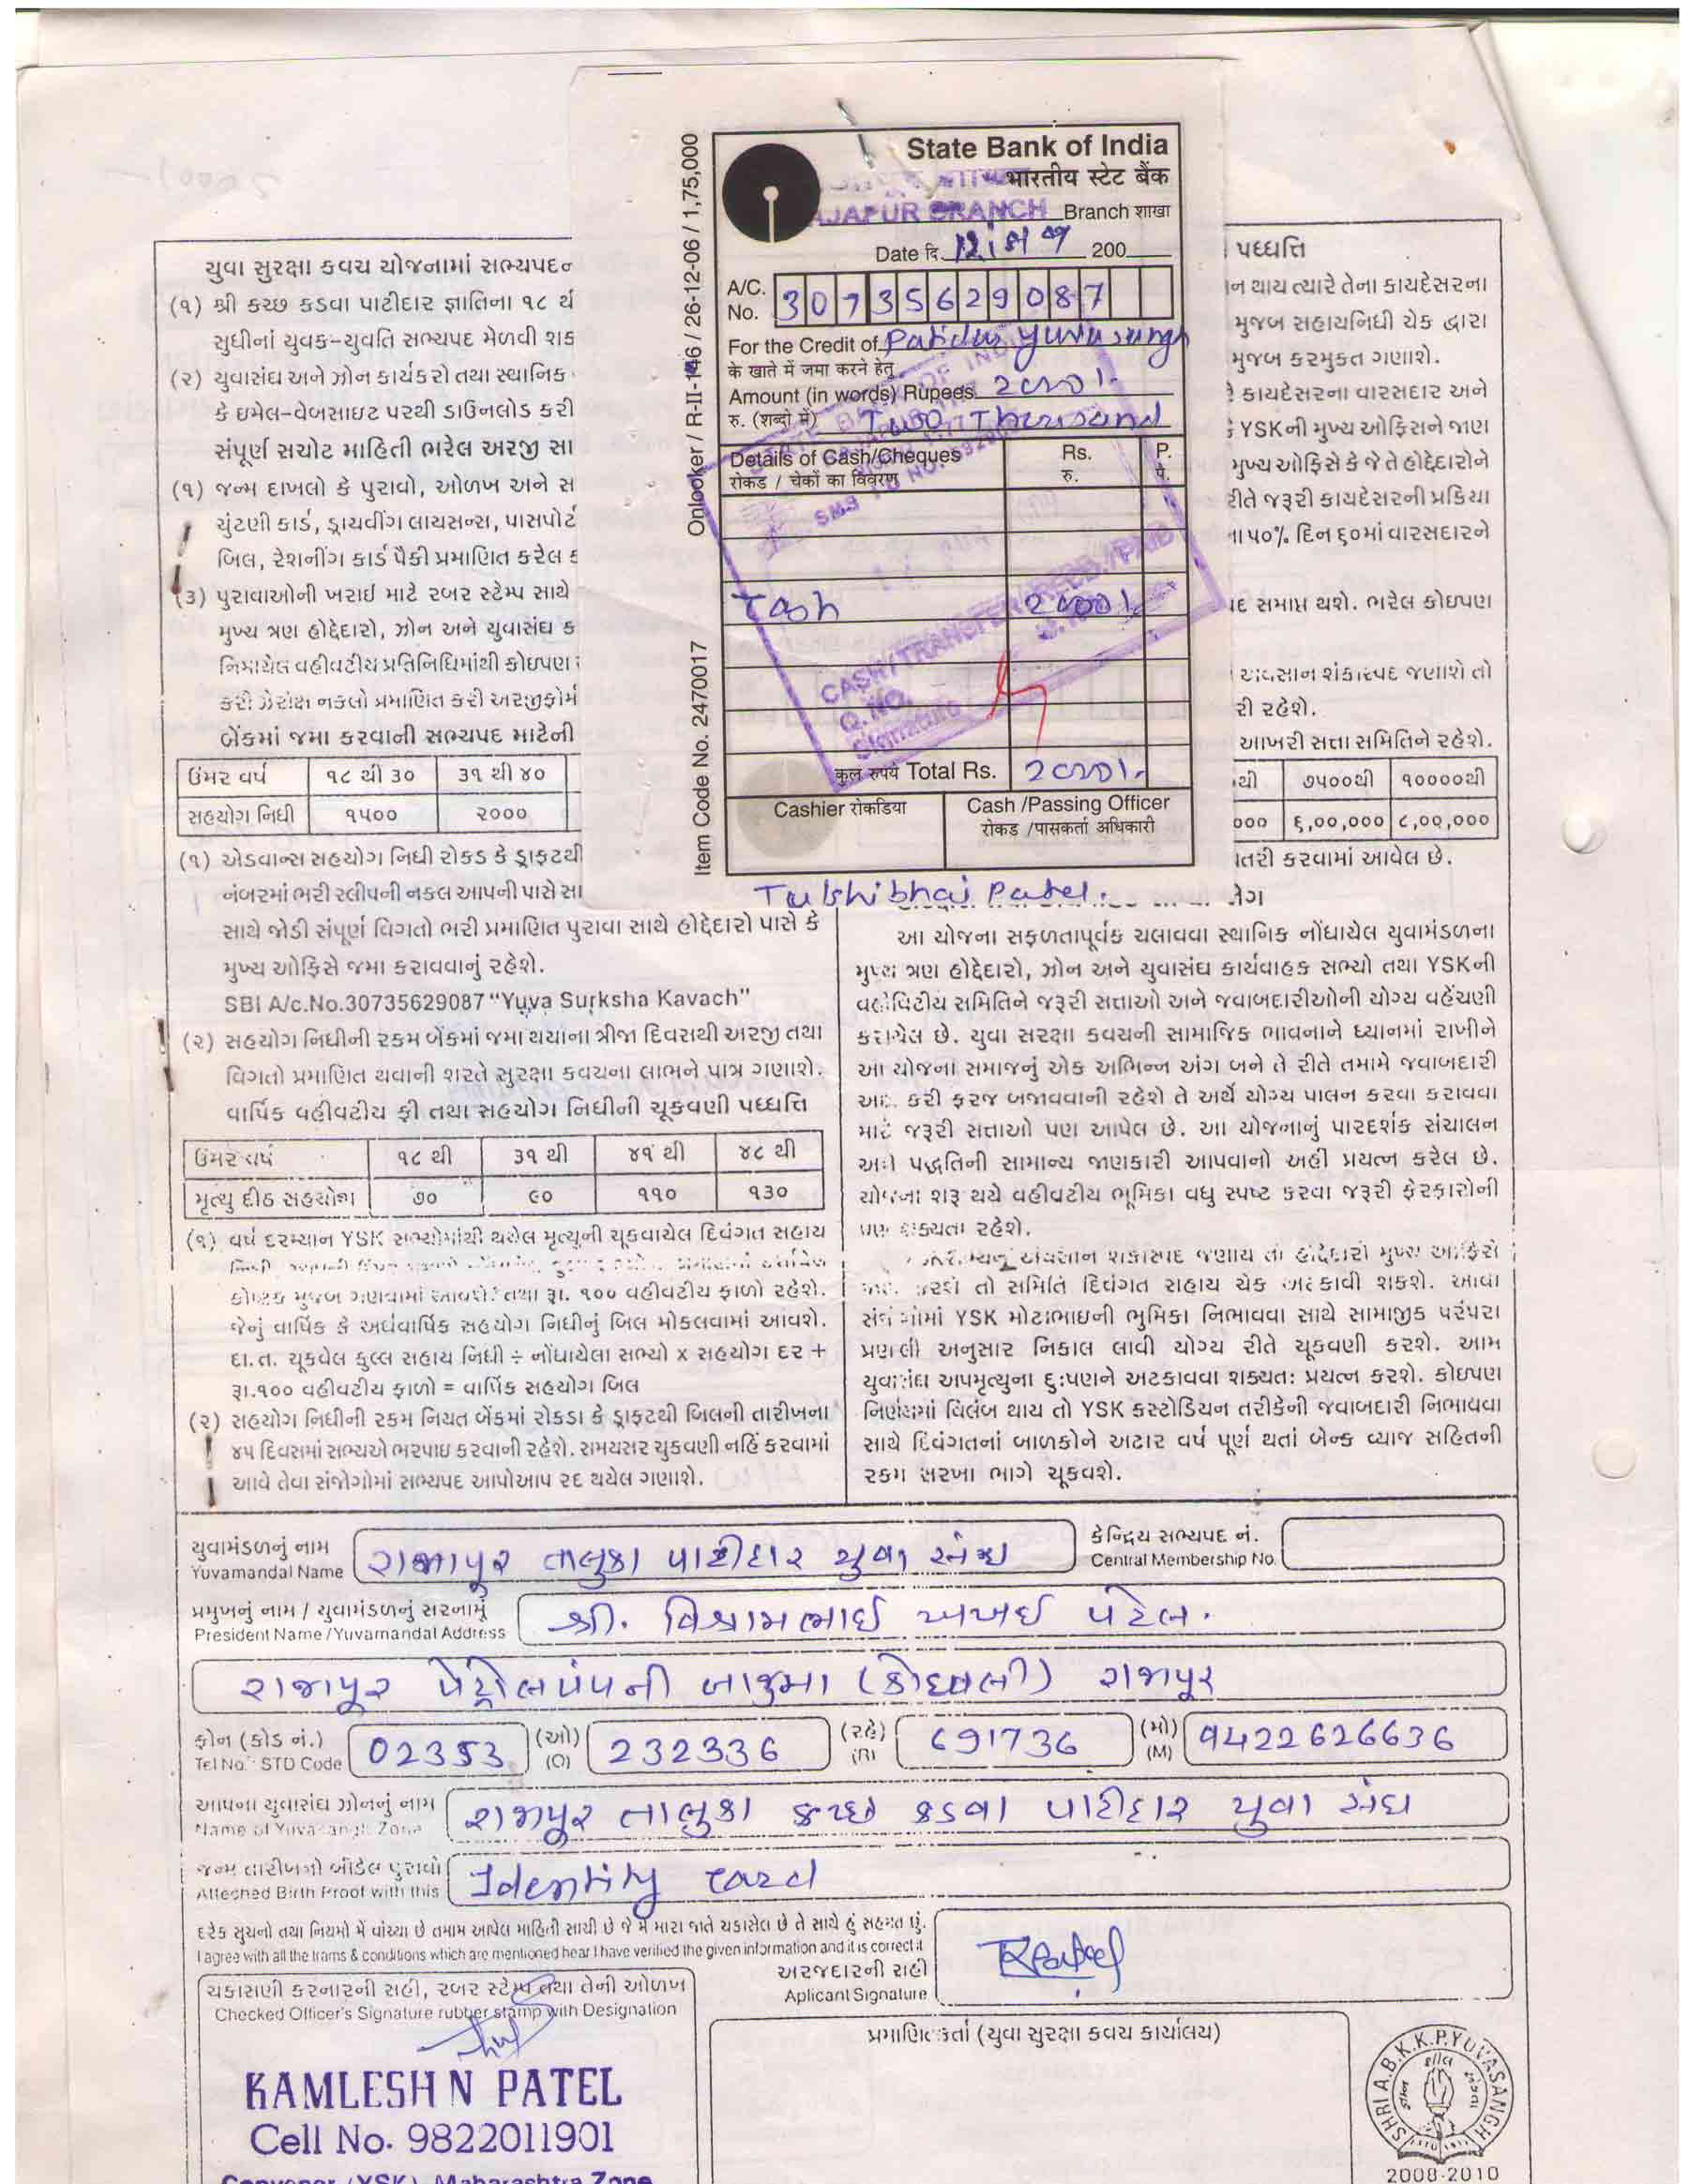 Onlooker / R-II-146 / 26-12-06 / 1,75,000
Item Code No. 2470017
State Bank of India
भारतीय स्टेट बैंक
BRANCH Branch शाखा
Date दि. 200
A/C. No. 30735629087
For the Credit of Patidar Yuva sangh
के खाते में जमा करने हेतु
Amount (in words) Rupees 2000/-
रु. (शब्दों में) Two Thousand
Details of Cash/Cheques Rs. P.
रोकड / चेकों का विवरण रु. पै.
Cash 2000/-
CASH/TRANSFER RECD./PAID
कुल रुपये Total Rs. 2000/-
Cashier रोकडिया Cash /Passing Officer
रोकड /पासकर्ता अधिकारी
Tulshibhai Patel.
યુવા સુરક્ષા કવચ યોજનામાં સભ્યપદ
(૧) શ્રી કચ્છ કડવા પાટીદાર જ્ઞાતિના ૧૮ થ
સુધીનાં યુવક-યુવતિ સભ્યપદ મેળવી શક
(૨) યુવાસંઘ અને ઝોન કાર્યકરો તથા સ્થાનિક
કે ઇમેલ-વેબસાઇટ પરથી ડાઉનલોડ કરી
સંપૂર્ણ સચોટ માહિતી ભરેલ અરજી સા
(૧) જન્મ દાખલો કે પુરાવો, ઓળખ અને સ
ચુંટણી કાર્ડ, ડ્રાયવીંગ લાયસન્સ, પાસપોર્ટ
બિલ, રેશનીંગ કાર્ડ પૈકી પ્રમાણિત કરેલ
(૩) પુરાવાઓની ખરાઇ માટે રબર સ્ટેમ્પ સાથે
મુખ્ય ત્રણ હોદ્દેદારો, ઝોન અને યુવાસંઘ ક
નિમાયેલ વહીવટીય પ્રતિનિધિમાંથી કોઇપણ
કરી ઝેરોક્ષ નકલો પ્રમાણિત કરી અરજીફોર્મ
બેંકમાં જમા કરવાની સભ્યપદ માટેની
ઉંમર વર્ષ ૧૮ થી ૩૦ ૩૧ થી ૪૦
સહયોગ નિધી ૧૫૦૦ ૨૦૦૦
(૧) એડવાન્સ સહયોગ નિધી રોકડ કે ડ્રાફટથી
નંબરમાં ભરી સ્લીપની નકલ આપની પાસે સા
સાથે જોડી સંપૂર્ણ વિગતો ભરી પ્રમાણિત પુરાવા સાથે હોદ્દેદારો પાસે કે
મુખ્ય ઓફિસે જમા કરાવવાનું રહેશે.
SBI A/c.No.30735629087 "Yuva Surksha Kavach"
(૨) સહયોગ નિધીની રકમ બેંકમાં જમા થયાના ત્રીજા દિવસથી અરજી તથા
વિગતો પ્રમાણિત થવાની શરતે સુરક્ષા કવચના લાભને પાત્ર ગણાશે.
વાર્ષિક વહીવટીય ફી તથા સહયોગ નિધીની ચૂકવણી પધ્ધતિ
ઉંમર વર્ષ ૧૮ થી ૩૧ થી ૪૧ થી ૪૮ થી
મૃત્યુ દીઠ સહયોગ ૭૦ ૯૦ ૧૧૦ ૧૩૦
(૧) વર્ષ દરમ્યાન YSK સભ્યોમાંથી થયેલ મૃત્યુની ચૂકવાયેલ દિવંગત સહાય
કોષ્ટક મુજબ ગણવામાં આવશે. તથા રૂા. ૧૦૦ વહીવટીય ફાળો રહેશે.
જેનું વાર્ષિક કે અર્ધવાર્ષિક સહયોગ નિધીનું બિલ મોકલવામાં આવશે.
દા.ત. ચૂકવેલ કુલ્લ સહાય નિધી ÷ નોંધાયેલા સભ્યો x સહયોગ દર +
રૂા.૧૦૦ વહીવટીય ફાળો = વાર્ષિક સહયોગ બિલ
(૨) સહયોગ નિધીની રકમ નિયત બેંકમાં રોકડા કે ડ્રાફટથી બિલની તારીખના
૪૫ દિવસમાં સભ્યએ ભરપાઇ કરવાની રહેશે. સમયસર ચુકવણી નહિં કરવામાં
આવે તેવા સંજોગોમાં સભ્યપદ આપોઆપ રદ થયેલ ગણાશે.
પધ્ધતિ
ન થાય ત્યારે તેના કાયદેસરના
મુજબ સહાયનિધી ચેક દ્વારા
મુજબ કરમુકત ગણાશે.
કાયદેસરના વારસદાર અને
YSKની મુખ્ય ઓફિસને જાણ
મુખ્ય ઓફિસે કે જે તે હોદ્દેદારોને
રીતે જરૂરી કાયદેસરની પ્રક્રિયા
ના ૫૦% દિન ૬૦માં વારસદારને
દ સમાપ્ત થશે. ભરેલ કોઇપણ
અવસાન શંકાસ્પદ જણાશે તો
રી રહેશે.
આખરી સત્તા સમિતિને રહેશે.
થી ૭૫૦૦થી ૧૦૦૦૦થી
૦૦૦ ૬,૦૦,૦૦૦ ૮,૦૦,૦૦૦
તરી કરવામાં આવેલ છે.
આ યોજના સફળતાપૂર્વક ચલાવવા સ્થાનિક નોંધાયેલ યુવામંડળના
મુખ્ય ત્રણ હોદ્દેદારો, ઝોન અને યુવાસંઘ કાર્યવાહક સભ્યો તથા YSKની
વહીવટીય સમિતિને જરૂરી સત્તાઓ અને જવાબદારીઓની યોગ્ય વહેંચણી
કરાયેલ છે. યુવા સરક્ષા કવચની સામાજિક ભાવનાને ધ્યાનમાં રાખીને
આ યોજના સમાજનું એક અભિન્ન અંગ બને તે રીતે તમામે જવાબદારી
અદા કરી ફરજ બજાવવાની રહેશે તે અર્થે યોગ્ય પાલન કરવા કરાવવા
માટે જરૂરી સત્તાઓ પણ આપેલ છે. આ યોજનાનું પારદર્શક સંચાલન
અને પદ્ધતિની સામાન્ય જાણકારી આપવાનો અહીં પ્રયત્ન કરેલ છે.
યોજના શરૂ થયે વહીવટીય ભૂમિકા વધુ સ્પષ્ટ કરવા જરૂરી ફેરફારોની
પણ શક્યતા રહેશે.
અવસાન શંકાસ્પદ જણાય તો હોદ્દેદારો મુખ્ય ઓફિસે
કરશે તો સમિતિ દિવંગત સહાય ચેક અટકાવી શકશે. આવા
સંજોગોમાં YSK મોટાભાઇની ભુમિકા નિભાવવા સાથે સામાજીક પરંપરા
પ્રણાલી અનુસાર નિકાલ લાવી યોગ્ય રીતે ચૂકવણી કરશે. આમ
યુવાસંઘ અપમૃત્યુના દુઃષણને અટકાવવા શક્યતઃ પ્રયત્ન કરશે. કોઇપણ
નિર્ણયમાં વિલંબ થાય તો YSK કસ્ટોડિયન તરીકેની જવાબદારી નિભાવવા
સાથે દિવંગતનાં બાળકોને અઢાર વર્ષ પૂર્ણ થતાં બેન્ક વ્યાજ સહિતની
રકમ સરખા ભાગે ચૂકવશે.
યુવામંડળનું નામ રાજાપૂર તાલુકા પાટીદાર યુવા સંઘ કેન્દ્રિય સભ્યપદ નં.
Yuvamandal Name Central Membership No.
પ્રમુખનું નામ / યુવામંડળનું સરનામું શ્રી. વિશ્રામભાઈ અખઈ પટેલ.
President Name /Yuvamandal Address
રાજાપૂર પેટ્રોલપંપની બાજુમા (કોદવલી) રાજાપૂર
ફોન (કોડ નં.) 02353 (ઓ) 232336 (રહે) 691736 (મો) 9422626636
Tel No. STD Code (O) (R) (M)
આપના યુવાસંઘ ઝોનનું નામ રાજાપૂર તાલુકા કચ્છ કડવા પાટીદાર યુવા સંઘ
Name of Yuvasangh Zone
જન્મ તારીખનો બીડેલ પુરાવો Identity card
Atteched Birth Proof with this
દરેક સુચનો તથા નિયમો મેં વાંચ્યા છે તમામ આપેલ માહિતી સાચી છે જે મેં મારા જાતે ચકાસેલ છે તે સાથે હું સહમત છું.
I agree with all the trams & conditions which are mentioned hear I have verified the given information and it is correct it
અરજદારની સહી
Aplicant Signature
ચકાસણી કરનારની સહી, રબર સ્ટેમ્પ તથા તેની ઓળખ
Checked Officer's Signature rubber stamp with Designation
KAMLESH N PATEL
Cell No. 9822011901
Convenor (YSK) Maharashtra Zone
પ્રમાણિતકર્તા (યુવા સુરક્ષા કવચ કાર્યાલય)
SHRI A.B.K.K.P. YUVASANGH
2008-2010